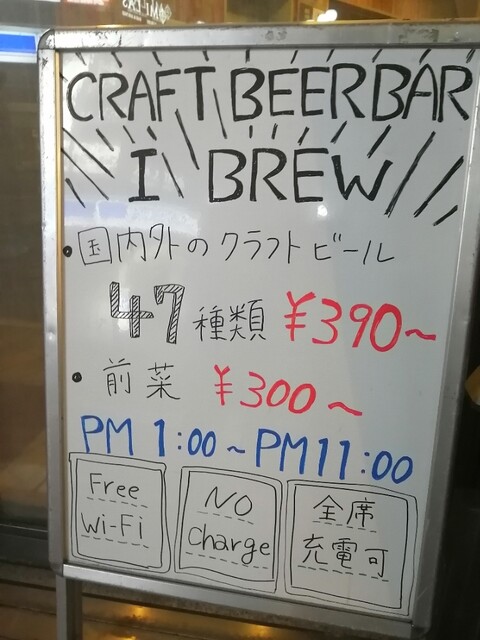 CRAFT BEER BAR
I BREW
• 国内外のクラフトビール
47種類 ¥390~
• 前菜 ¥300~
PM 1:00~PM11:00
Free
Wi-Fi
NO
Charge
全席
充電可